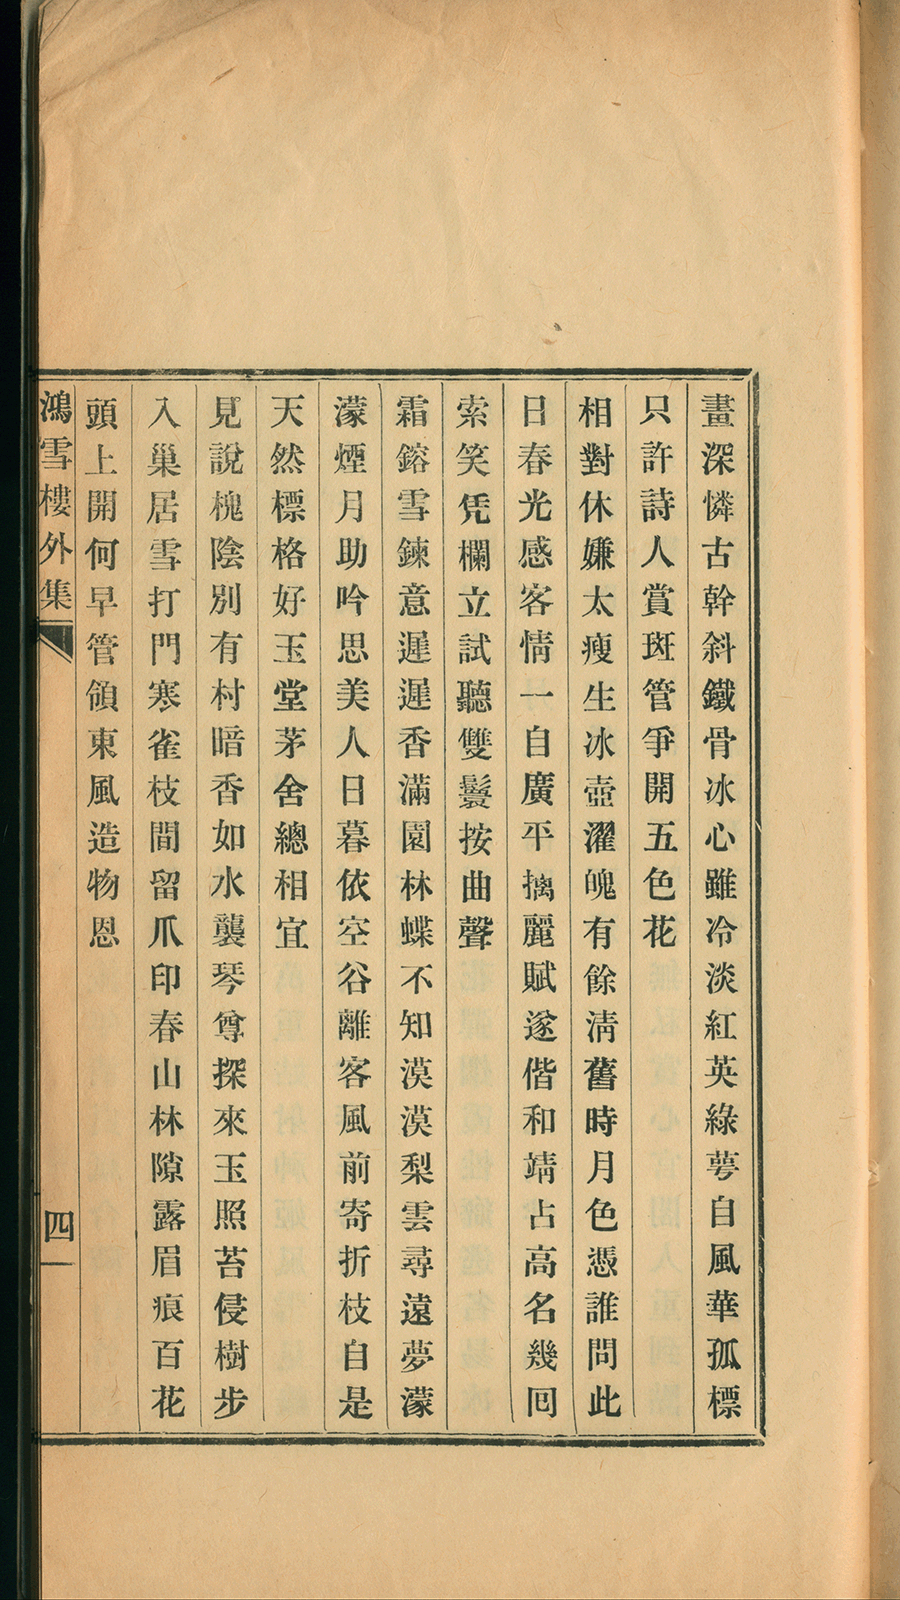 畫深憐古幹斜鐵骨冰心雖冷淡紅英綠萼自風華孤標
只許詩人賞斑管爭開五色花
相對休嫌太瘦生冰壺濯魄有餘淸舊時月色憑誰問此
日春光感客情一自廣平摛麗賦遂偕和靖占高名幾囘
索笑凭欄立試聽雙鬟按曲聲
霜鎔雪鍊意遲遲香滿園林蝶不知漠漠梨雲尋遠夢濛
濛煙月助吟思美人日暮依空谷離客風前寄折枝自是
天然標格好玉堂茅舍總相宜
見說槐陰別有村暗香如水襲琴尊探來玉照苔侵樹步
入巢居雪打門寒雀枝間留爪印春山林隙露眉痕百花
頭上開何早管領東風造物恩
鴻雪樓外集
四